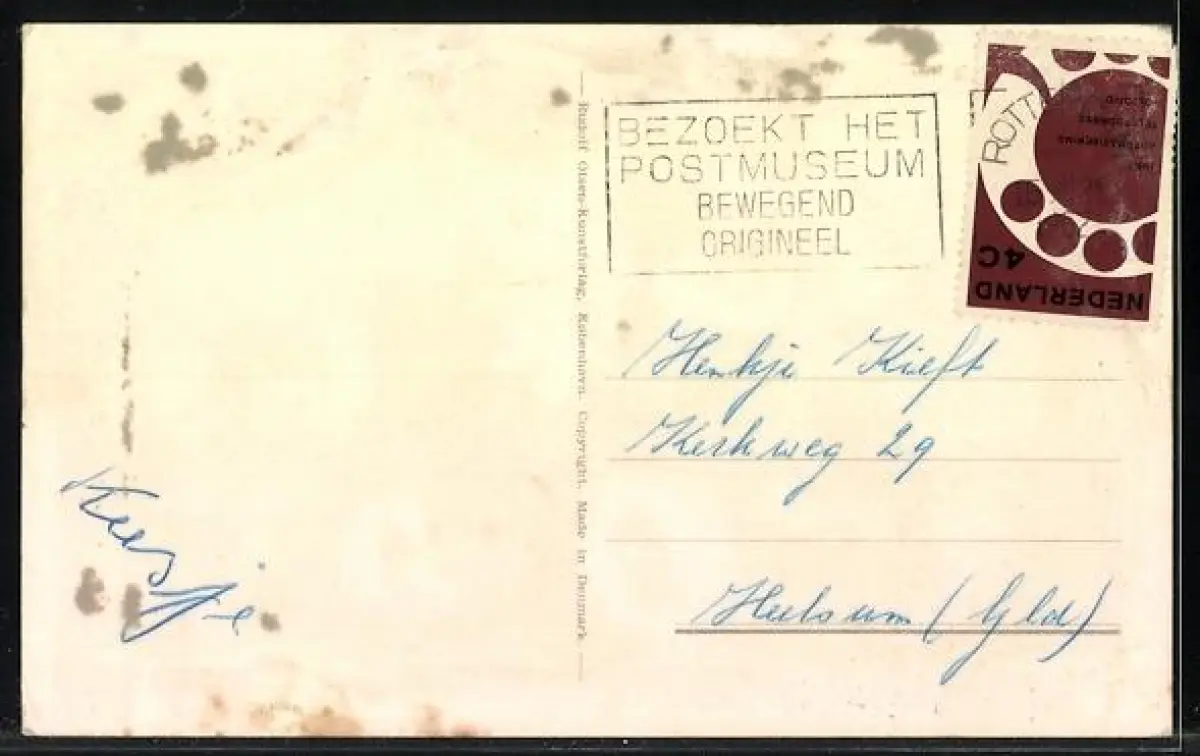 BEZOEKT HET
POSTMUSEUM
BEWEGEND
ORIGINEEL
ROTT
NEDERLAND
4C
Rudolf Olsen-Kunstforlag, København. Copyright. Made in Denmark.
Henkje Kieft
Kerkweg 29
Heelsum (Gld)
Keesje